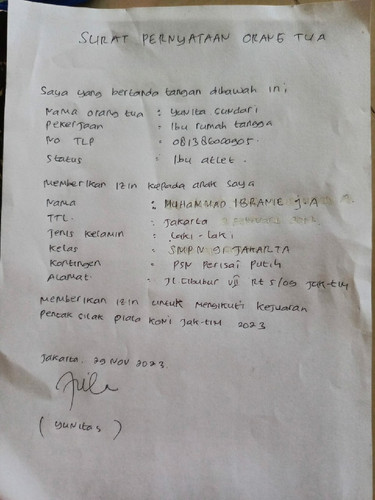 SURAT PERNYATAAN ORANG TUA
Saya yang bertanda tangan dibawah ini
Nama orang tua : Yunita Sundari
Pekerjaan : Ibu rumah tangga
No TLP : 081386000905
Status : Ibu atlet.
Memberikan izin kepada anak saya
Nama : MUHAMMAD IBRANIE
TTL : Jakarta
Jenis kelamin : Laki-laki
Kelas : SMPN 91 JAKARTA
Kontingen : PSN Perisai Putih
Alamat : Jl. Cibubur VII Rt 5/09 Jak-tim
Memberikan izin untuk mengikuti kejuaran
pencak silak piala KONI Jak-TIM 2023
Jakarta. 29 NOV 2023.
( YUNITA S )